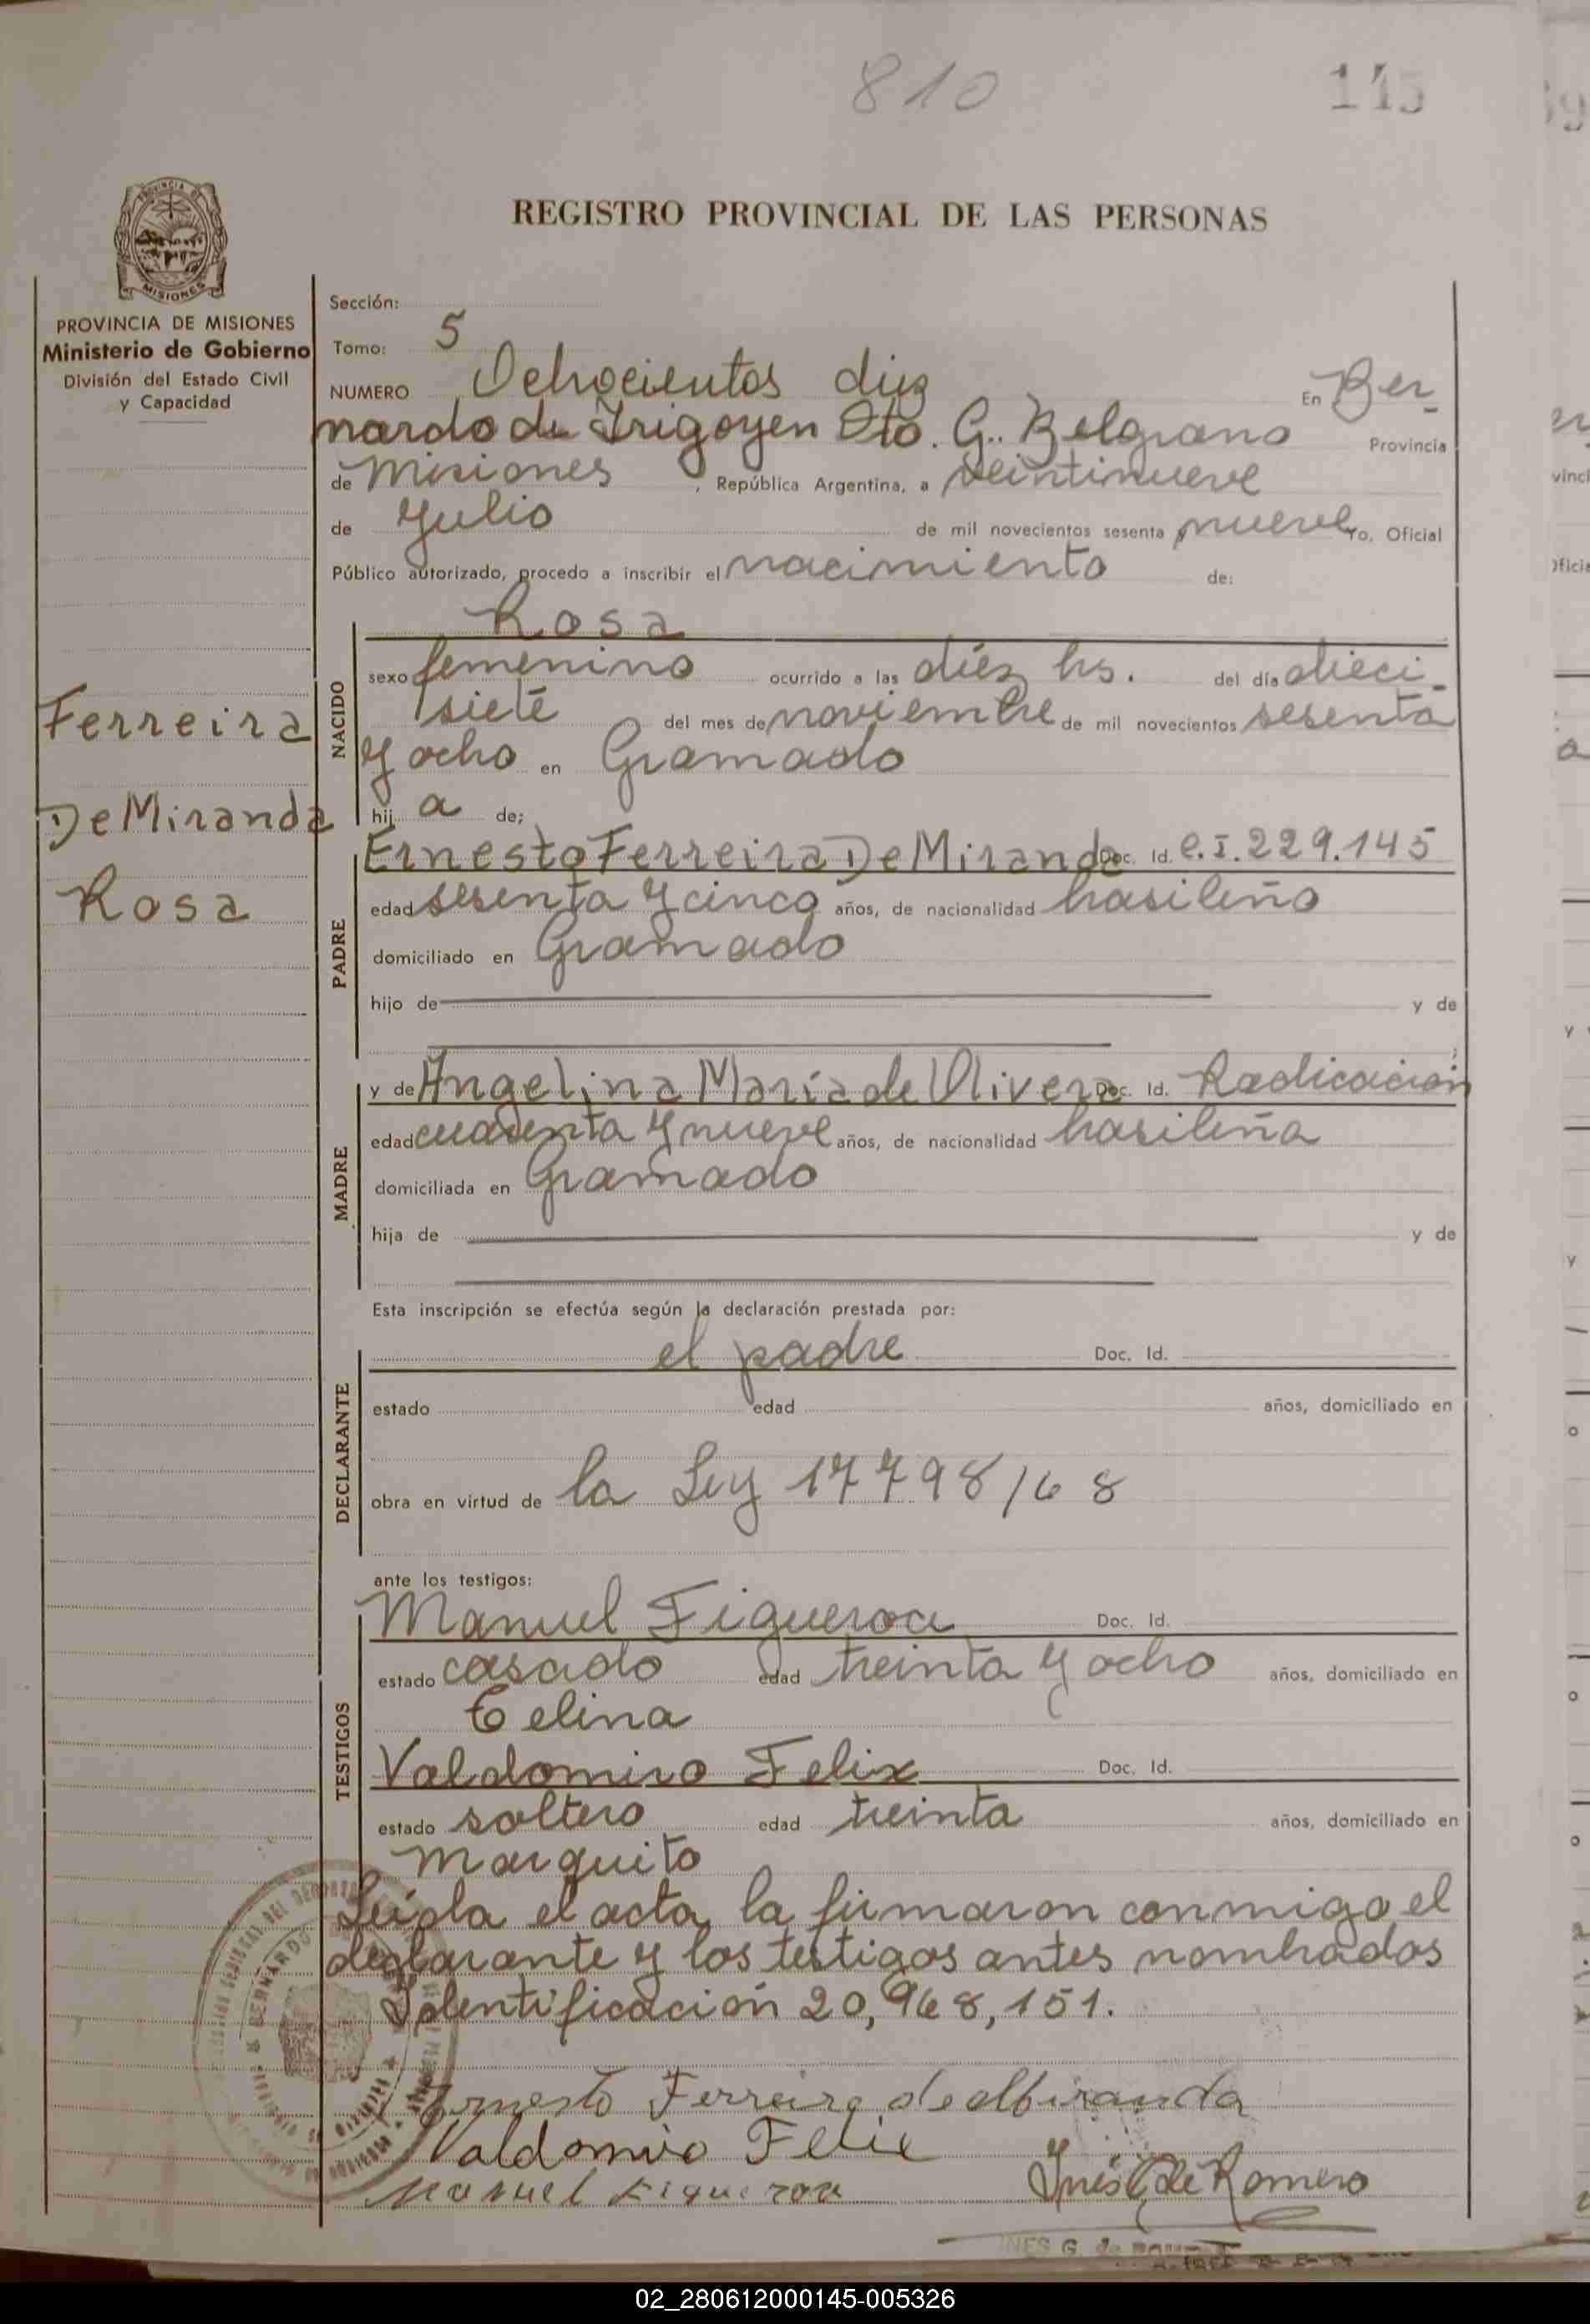 810
115
REGISTRO PROVINCIAL DE LAS PERSONAS
PROVINCIA DE
MISIONES
PROVINCIA DE MISIONES
Ministerio de Gobierno
División del Estado Civil
y Capacidad
Sección:
Tomo: 5
NUMERO Ochocientos diez En Ber-
nardo de Irigoyen Dto. G. Belgrano Provincia
de Misiones, República Argentina, a veintinueve
de Julio de mil novecientos sesenta nueve Yo, Oficial
Público autorizado, procedo a inscribir el nacimiento de:
Ferreira
De Miranda
Rosa
NACIDO
Rosa
sexo femenino ocurrido a las diez hs. del día dieci-
siete del mes de noviembre de mil novecientos sesenta
y ocho en Gramado
hij a de;
PADRE
Ernesto Ferreira De Miranda Doc. Id. C.I. 229.145
edad sesenta y cinco años, de nacionalidad brasileño
domiciliado en Gramado
hijo de y de
MADRE
y de Angelina María de Olivera Doc. Id. Radicación
edad cuarenta y nueve años, de nacionalidad brasileña
domiciliada en Gramado
hija de y de
Esta inscripción se efectúa según la declaración prestada por:
DECLARANTE
el padre Doc. Id.
estado edad años, domiciliado en
obra en virtud de la Ley 17798/68
ante los testigos:
TESTIGOS
Manuel Figueroa Doc. Id.
estado casado edad treinta y ocho años, domiciliado en
Celina
Valdomiro Felix Doc. Id.
estado soltero edad treinta años, domiciliado en
Marquito
Leída el acta, la firmaron conmigo el
declarante y los testigos antes nombrados
Identificación 20,968,151.
Ernesto Ferreira de Miranda
Valdomiro Felix
Manuel Figueroa
Inés G. de Romero
INES G. de
02_280612000145-005326